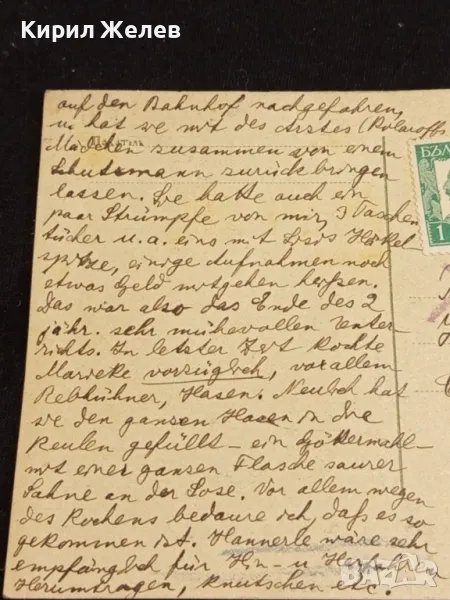 Кирил Желев
auf den Bahnhof nachgefahren,
u. hat sie mit des Arztes (Polaroffs
БЪЛ
Mädchen zusammen von einem
Schutzmann zurückbringen
lassen. Sie hatte auch ein
paar Strümpfe von mir, 3 Taschen
1
tücher u. a. eins mit Losis Häkel
spitze, einige Aufnahmen noch
etwas Geld mitgehen heissen.
Das war also das Ende des 2
jähr. sehr mühevollen Unter-
richts. In letzter Zeit kochte
Marieke vorzüglich, vor allem
Rebhühner, Hasen. Neulich hat
sie den ganzen Hasen in die
Keulen gefüllt – ein Göttermahl –
mit einer ganzen Flasche saurer
Sahne an der Sose. Vor allem wegen
des Kochens bedaure ich, daß es so
gekommen ist. Hannerle wäre sehr
empfänglich für Hin- u
Herumtragen, Knutschen etc.
bazar